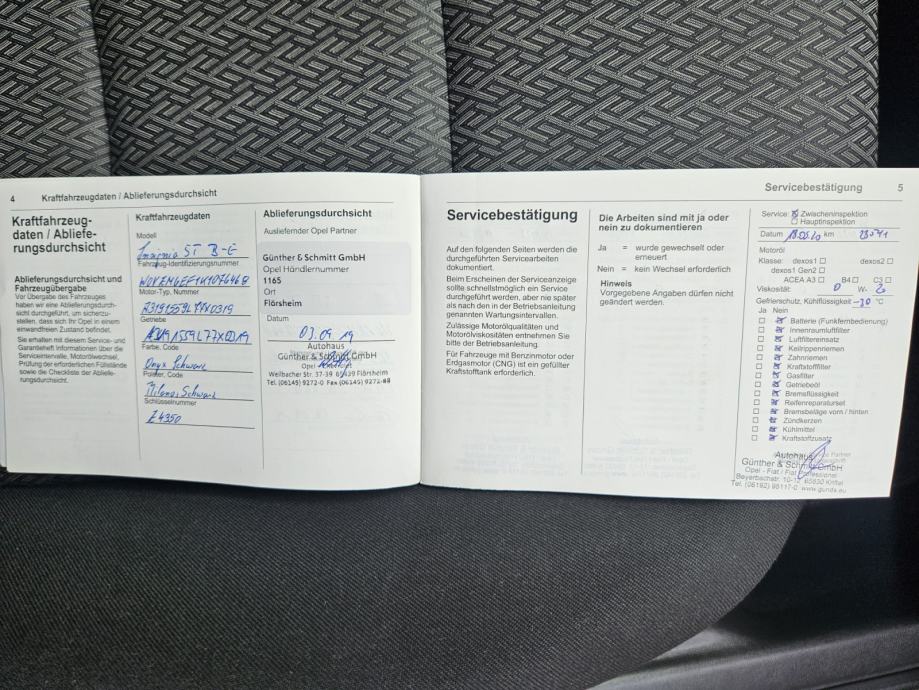 4 Kraftfahrzeugdaten / Ablieferungsdurchsicht
Kraftfahrzeug-
daten / Abliefe-
rungsdurchsicht
Ablieferungsdurchsicht und
Fahrzeugübergabe
Vor Übergabe des Fahrzeuges
haben wir eine Ablieferungsdurch-
sicht durchgeführt, um sicherzu-
stellen, dass sich Ihr Opel in einem
einwandfreien Zustand befindet.
Sie erhalten mit diesem Service- und
Garantieheft Informationen über die
Serviceintervalle, Motorölwechsel,
Prüfung der erforderlichen Füllstände
sowie die Checkliste der Abliefe-
rungsdurchsicht.
Kraftfahrzeugdaten
Modell
Insignia ST B-E
Fahrzeug-Identifizierungsnummer
Motor-Typ, Nummer
Getriebe
Farbe, Code
Onyx Schwarz
Polster, Code
Milano, Schwarz
Schlüsselnummer
Z4350
Ablieferungsdurchsicht
Ausliefernder Opel Partner
Günther & Schmitt GmbH
Opel Händlernummer
1165
Ort
Flörsheim
Datum
03.09.19
Autohaus
Günther & Schmitt GmbH
Opel
Weilbacher Str. 37-39 65439 Flörsheim
Tel. (06145) 9272-0 Fax (06145) 9272-88
Servicebestätigung 5
Servicebestätigung
Auf den folgenden Seiten werden die
durchgeführten Servicearbeiten
dokumentiert.
Beim Erscheinen der Serviceanzeige
sollte schnellstmöglich ein Service
durchgeführt werden, aber nie später
als nach den in der Betriebsanleitung
genannten Wartungsintervallen.
Zulässige Motorölqualitäten und
Motorölviskositäten entnehmen Sie
bitte der Betriebsanleitung.
Für Fahrzeuge mit Benzinmotor oder
Erdgasmotor (CNG) ist ein gefüllter
Kraftstofftank erforderlich.
Die Arbeiten sind mit ja oder
nein zu dokumentieren
Ja = wurde gewechselt oder
erneuert
Nein = kein Wechsel erforderlich
Hinweis
Vorgegebene Angaben dürfen nicht
geändert werden.
Service: Zwischeninspektion
Hauptinspektion
Datum 18.05.20 km
Motoröl
Klasse: dexos1 dexos2
dexos1 Gen2
ACEA A3 B4 C3
Viskosität: 0 W- 20
Gefrierschutz, Kühlflüssigkeit -30 °C
Ja Nein
Batterie (Funkfernbedienung)
Innenraumluftfilter
Luftfiltereinsatz
Keilrippenriemen
Zahnriemen
Kraftstofffilter
Gasfilter
Getriebeöl
Bremsflüssigkeit
Reifenreparaturset
Bremsbeläge vorn / hinten
Zündkerzen
Kühlmittel
Kraftstoffzusatz
Autohaus
Günther & Schmitt GmbH
Opel - Fiat / Fiat Professional
Beyerbachstr. 10-12 65830 Kriftel
Tel. (06192) 95117-0 www.gunds.eu